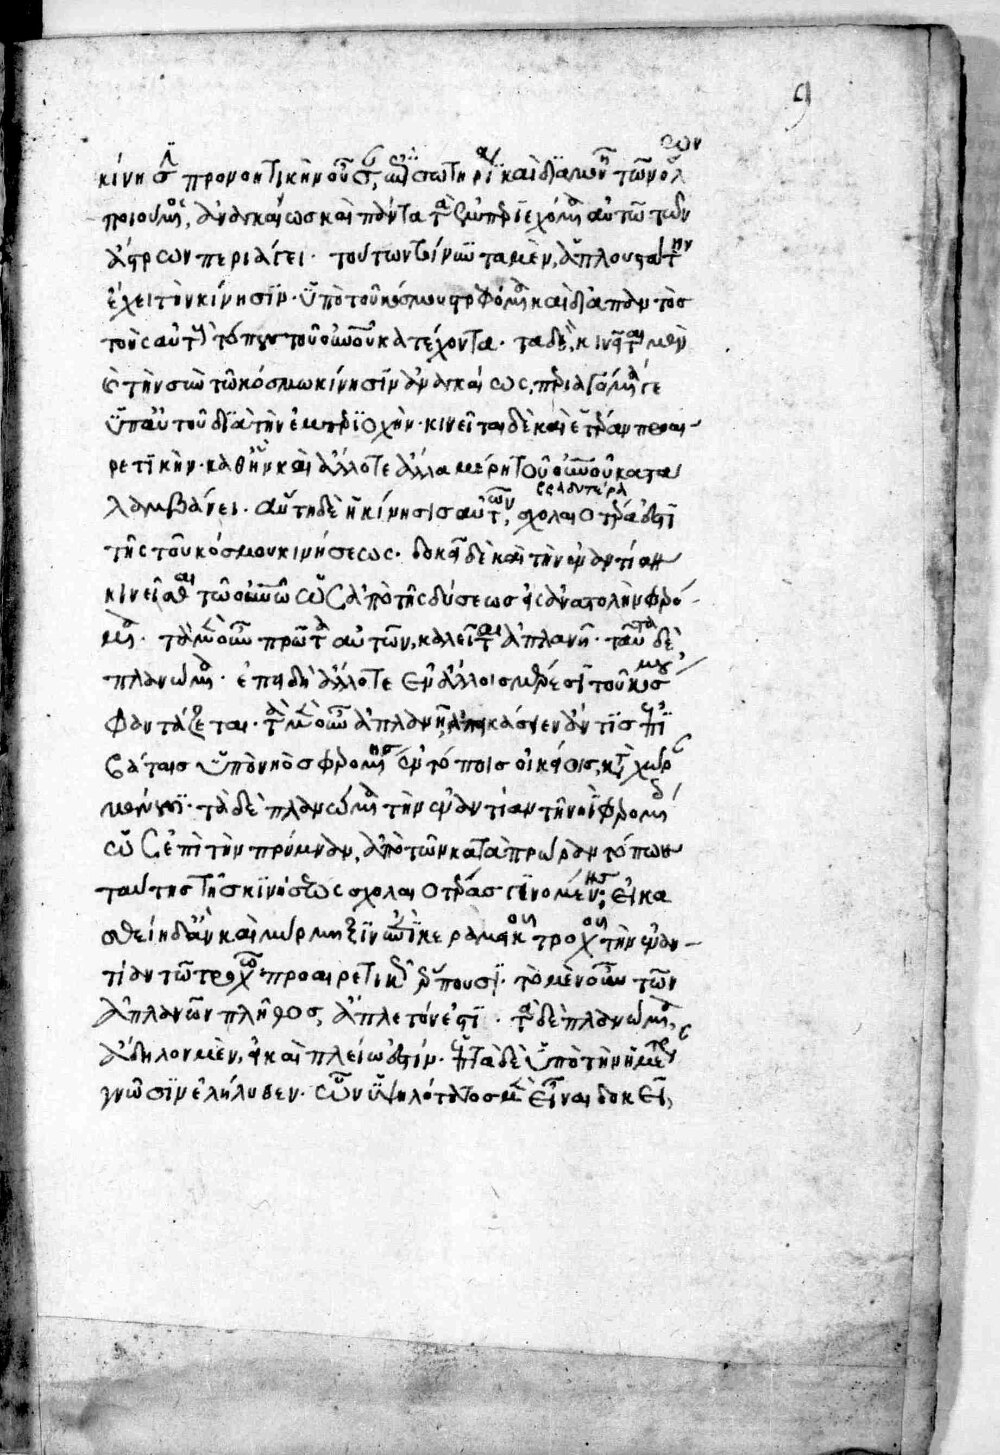 κίνησιν προνοητικὴν οὖσαν, ἐπὶ σωτηρίᾳ καὶ διαμονῇ τῶν ὅλων
ποιούμενος, ἀναγκαίως καὶ πάντα τὰ ἐμπεριεχόμενα αὐτῷ τῶν
ἄστρων περιάγει. τούτων τοίνυν τὰ μὲν, ἁπλουστάτην
ἔχει τὴν κίνησιν. ὑπὸ τοῦ κόσμου στρεφόμενα καὶ διὰ παντὸς
τοὺς αὐτοὺς τόπους τοῦ οὐρανοῦ κατέχοντα. τὰ δὲ, κινεῖται μὲν
καὶ τὴν σὺν τῷ κόσμῳ κίνησιν ἀναγκαίως, περιαγόμενά γε
ὑπ' αὐτοῦ διὰ τὴν ἐμπεριοχήν. κινεῖται δὲ καὶ ἑτέραν προαι-
ρετικήν. καθ' ἣν καὶ ἄλλοτε ἄλλα μέρη τοῦ οὐρανοῦ κατα
λαμβάνει. αὕτη δὲ ἡ κίνησις αὐτῶν, σχολαιοτέρα ἐστὶ
βραδυτέρα
τῆς τοῦ κόσμου κινήσεως. δοκεῖ δὲ καὶ τὴν ἐναντίαν
κινεῖσθαι τῷ οὐρανῷ ὡς ἀπὸ τῆς δύσεως εἰς ἀνατολὴν φερό-
μενα. τὰ μὲν οὖν πρῶτα αὐτῶν, καλεῖται ἀπλανῆ. ταῦτα δὲ,
πλανώμενα. ἐπειδὴ ἄλλοτε ἐν ἄλλοις μέρεσι τοῦ κόσμου
φαντάζεται. τὰ μὲν οὖν ἀπλανῆ, ἀπεικάσειεν ἄν τις ἐπι
βάταις ὑπὸ νηὸς φερομένης ἐν τόποις οἰκείοις, κατὰ χώραν
μένουσι. τὰ δὲ πλανώμενα τὴν ἐναντίαν τῇ νηῒ φερομένοις
ὡς ἐπὶ τὴν πρύμναν, ἀπὸ τῶν κατὰ πρῶραν τόπων
ταύτης τῆς κινήσεως σχολαιοτέρας γινομένης. εἰκα
σθείη δ' ἂν καὶ μύρμηξιν ἐπὶ κεραμεικοῦ τροχοῦ τὴν ἐναν-
τίαν τῷ τροχῷ προαιρετικῶς ἕρπουσι. τὸ μὲν οὖν τῶν
ἀπλανῶν πλῆθος, ἄπλετόν ἐστι. τὰ δὲ πλανώμενα,
ἄδηλον μὲν, εἰ καὶ πλείω ἐστίν. ἑπτὰ δὲ ὑπὸ τὴν ἡμετέραν
γνῶσιν ἐλήλυθεν. ὧν ὑψηλότατος μὲν εἶναι δοκεῖ,